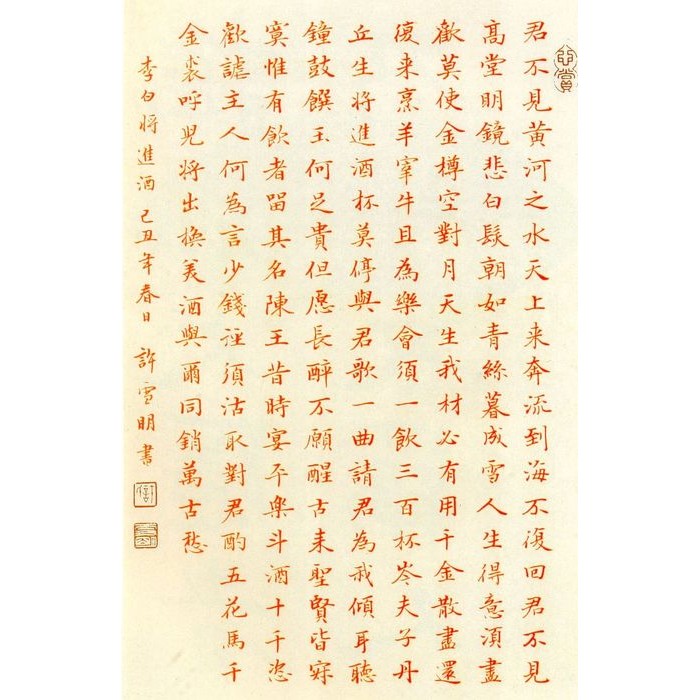 君不見黃河之水天上来奔流到海不復回君不見
高堂明鏡悲白髮朝如青絲暮成雪人生得意須盡
歡莫使金樽空對月天生我材必有用千金散盡還
復来烹羊宰牛且為樂會須一飲三百杯岑夫子丹
丘生將進酒杯莫停與君歌一曲請君為我傾耳聽
鐘鼓饌玉何足貴但愿長醉不願醒古来聖賢皆寂
寞惟有飲者留其名陳王昔時宴平樂斗酒十千恣
歡謔主人何為言少錢逕須沽取對君酌五花馬千
金裘呼兒將出換美酒與爾同銷萬古愁
李白將進酒 己丑年春日 許雪明書